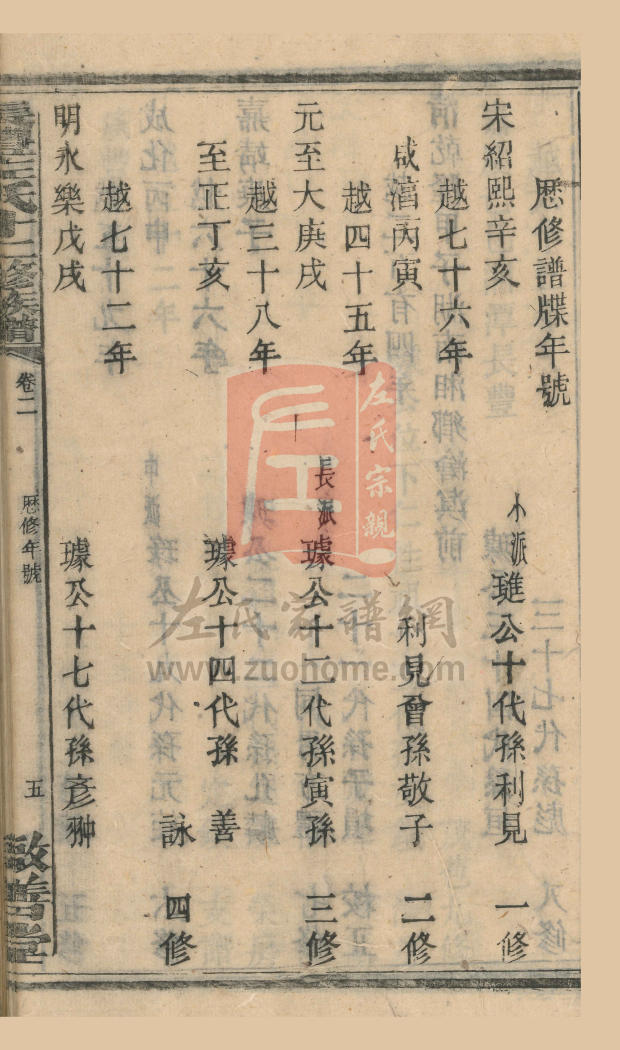 歷修譜牒年號
宋紹熙辛亥 小派璡公十代孫利見 一修
越七十六年
咸淳丙寅 利見會孫敬子 二修
越四十五年
元至大庚戌 長派璩公十二代孫寅孫 三修
越三十八年
至正丁亥 璩公十四代孫 善
詠 四修
越七十二年
明永樂戊戌 璩公十七代孫彥翀
左氏十二修族譜
卷二
歷修年號
五
敦善堂
左氏宗親
左氏家譜網
www.zuohome.com